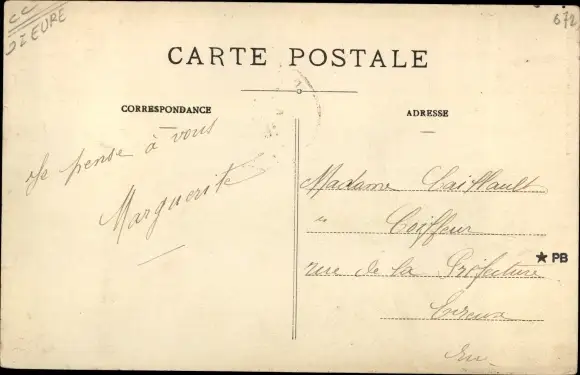 CC
27 EURE
672
CARTE POSTALE
CORRESPONDANCE
ADRESSE
Je pense à vous
Marguerite
Madame
" Coiffeur
rue de la Préfecture
★ PB
Evreux
Eu